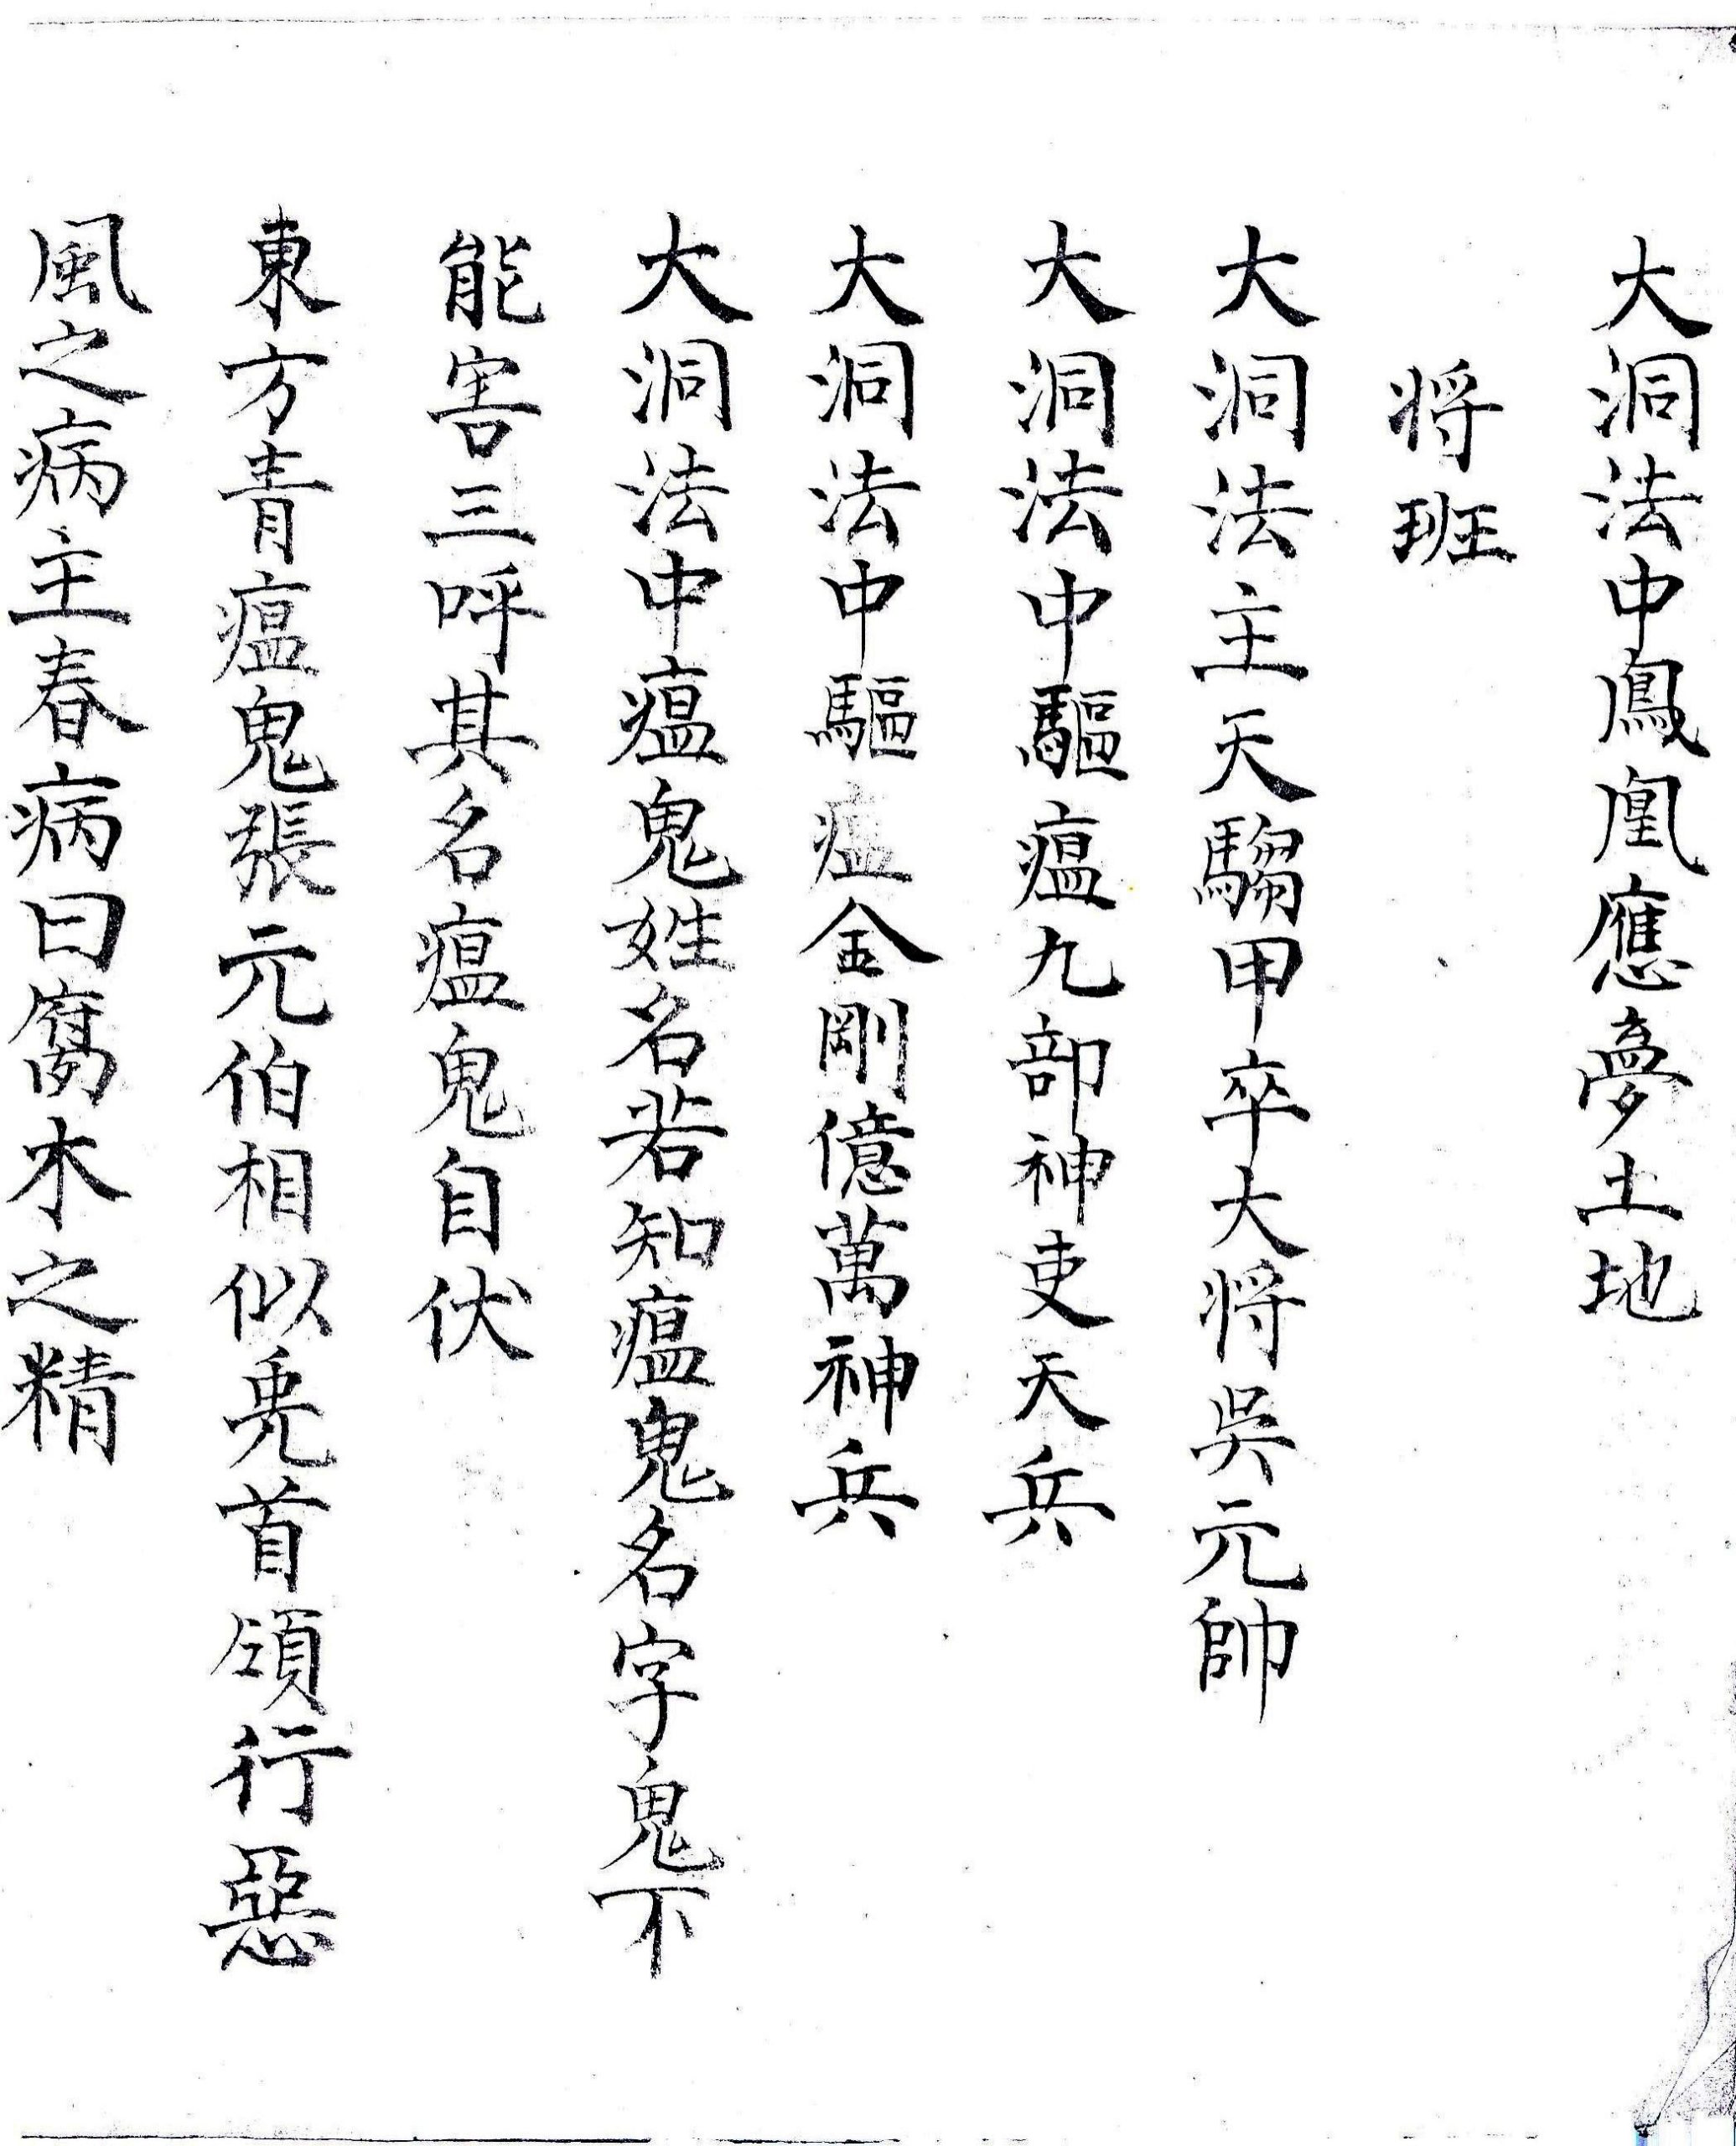 大洞法中鳳凰應夢土地
将班
大洞法主天騶甲卒大将吳元帥
大洞法中驅瘟九部神吏天兵
大洞法中驅瘟金剛億萬神兵
大洞法中瘟鬼姓名若知瘟鬼名字鬼不
能害三呼其名瘟鬼自伏
東方青瘟鬼張元伯相似兎首領行惡
風之病主春病曰腐木之精